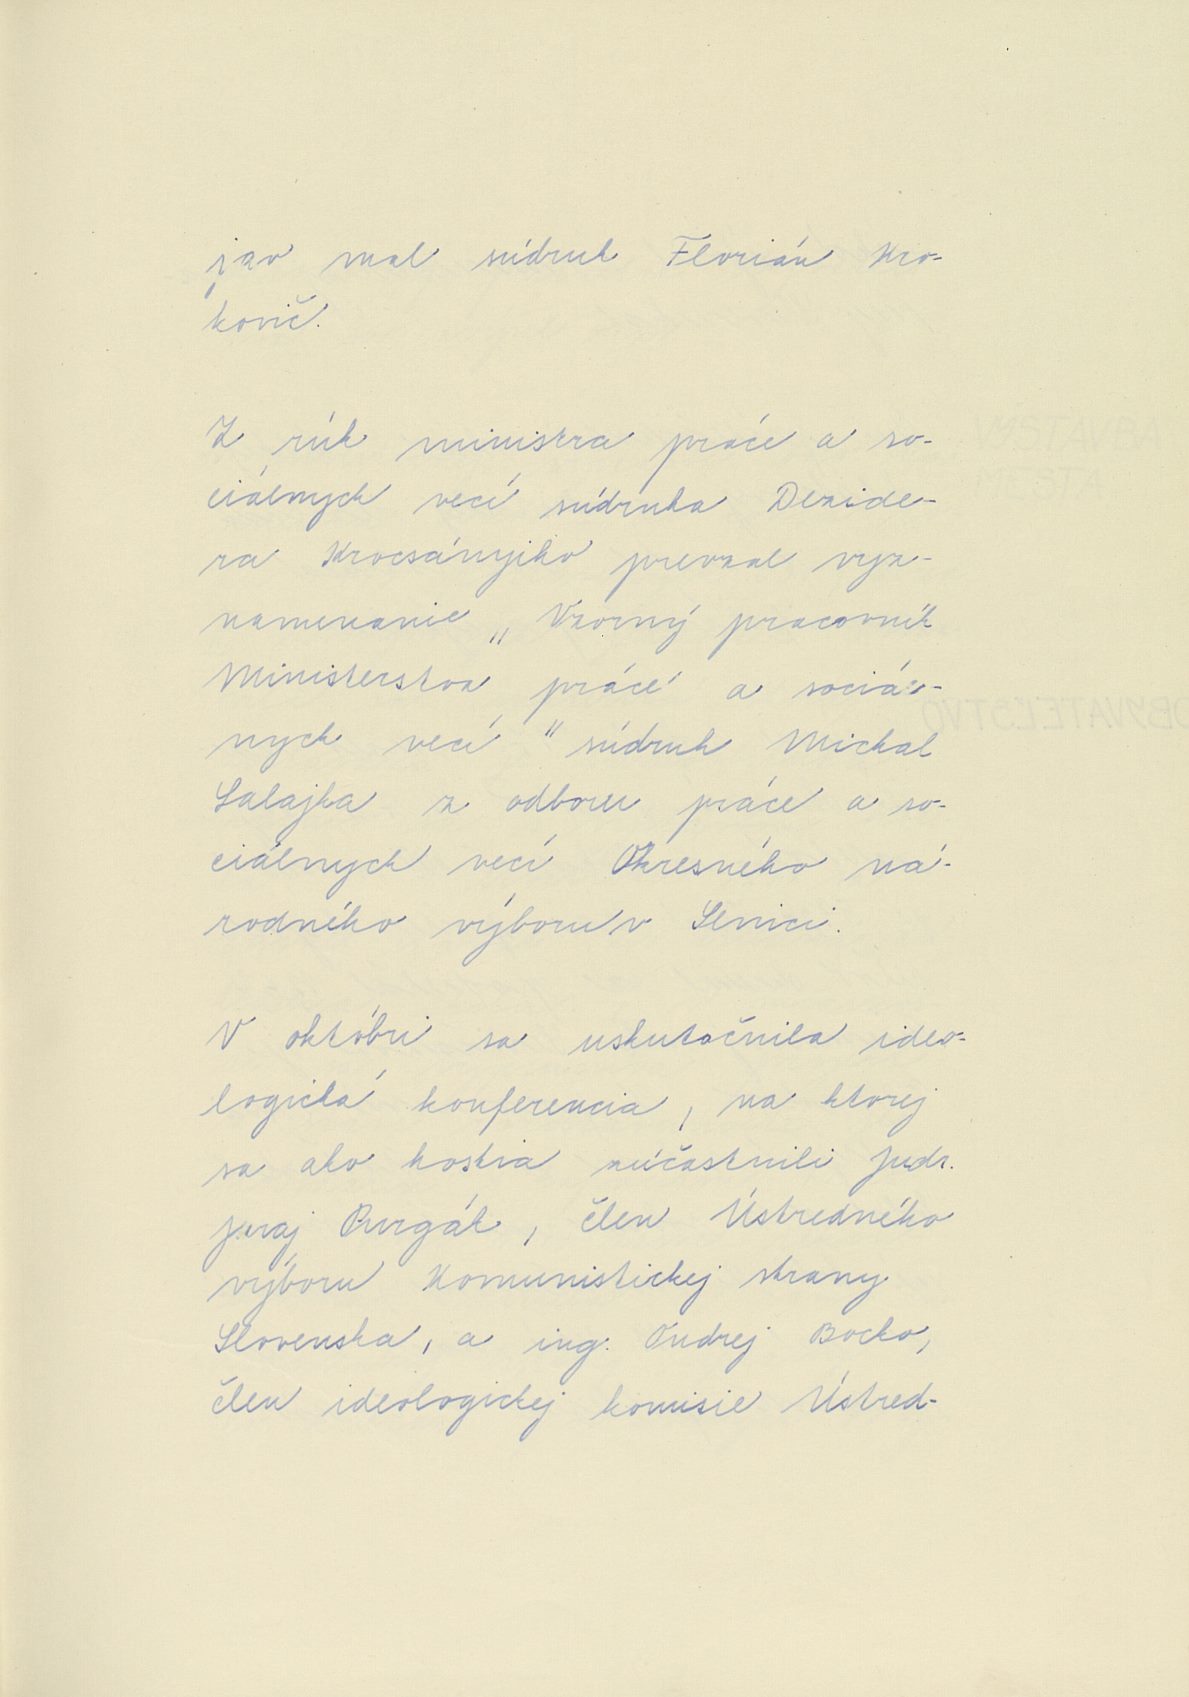 jav mal súdruh Florián Kro-
kovič.
Z rúk ministra práce a so-
ciálnych vecí súdruha Dezide-
ra Krocsányiho prevzal vyz-
namenanie „Vzorný pracovník
Ministerstva práce a sociál-
nych vecí" súdruh Michal
Salajka z odboru práce a so-
ciálnych vecí Okresného ná-
rodného výboru v Senici.
V októbri sa uskutočnila ideo-
logická konferencia, na ktorej
sa ako hostia zúčastnili Judr.
Juraj Purgát, člen Ústredného
výboru Komunistickej strany
Slovenska, a ing. Ondrej Bocko,
člen ideologickej komisie Ústred-